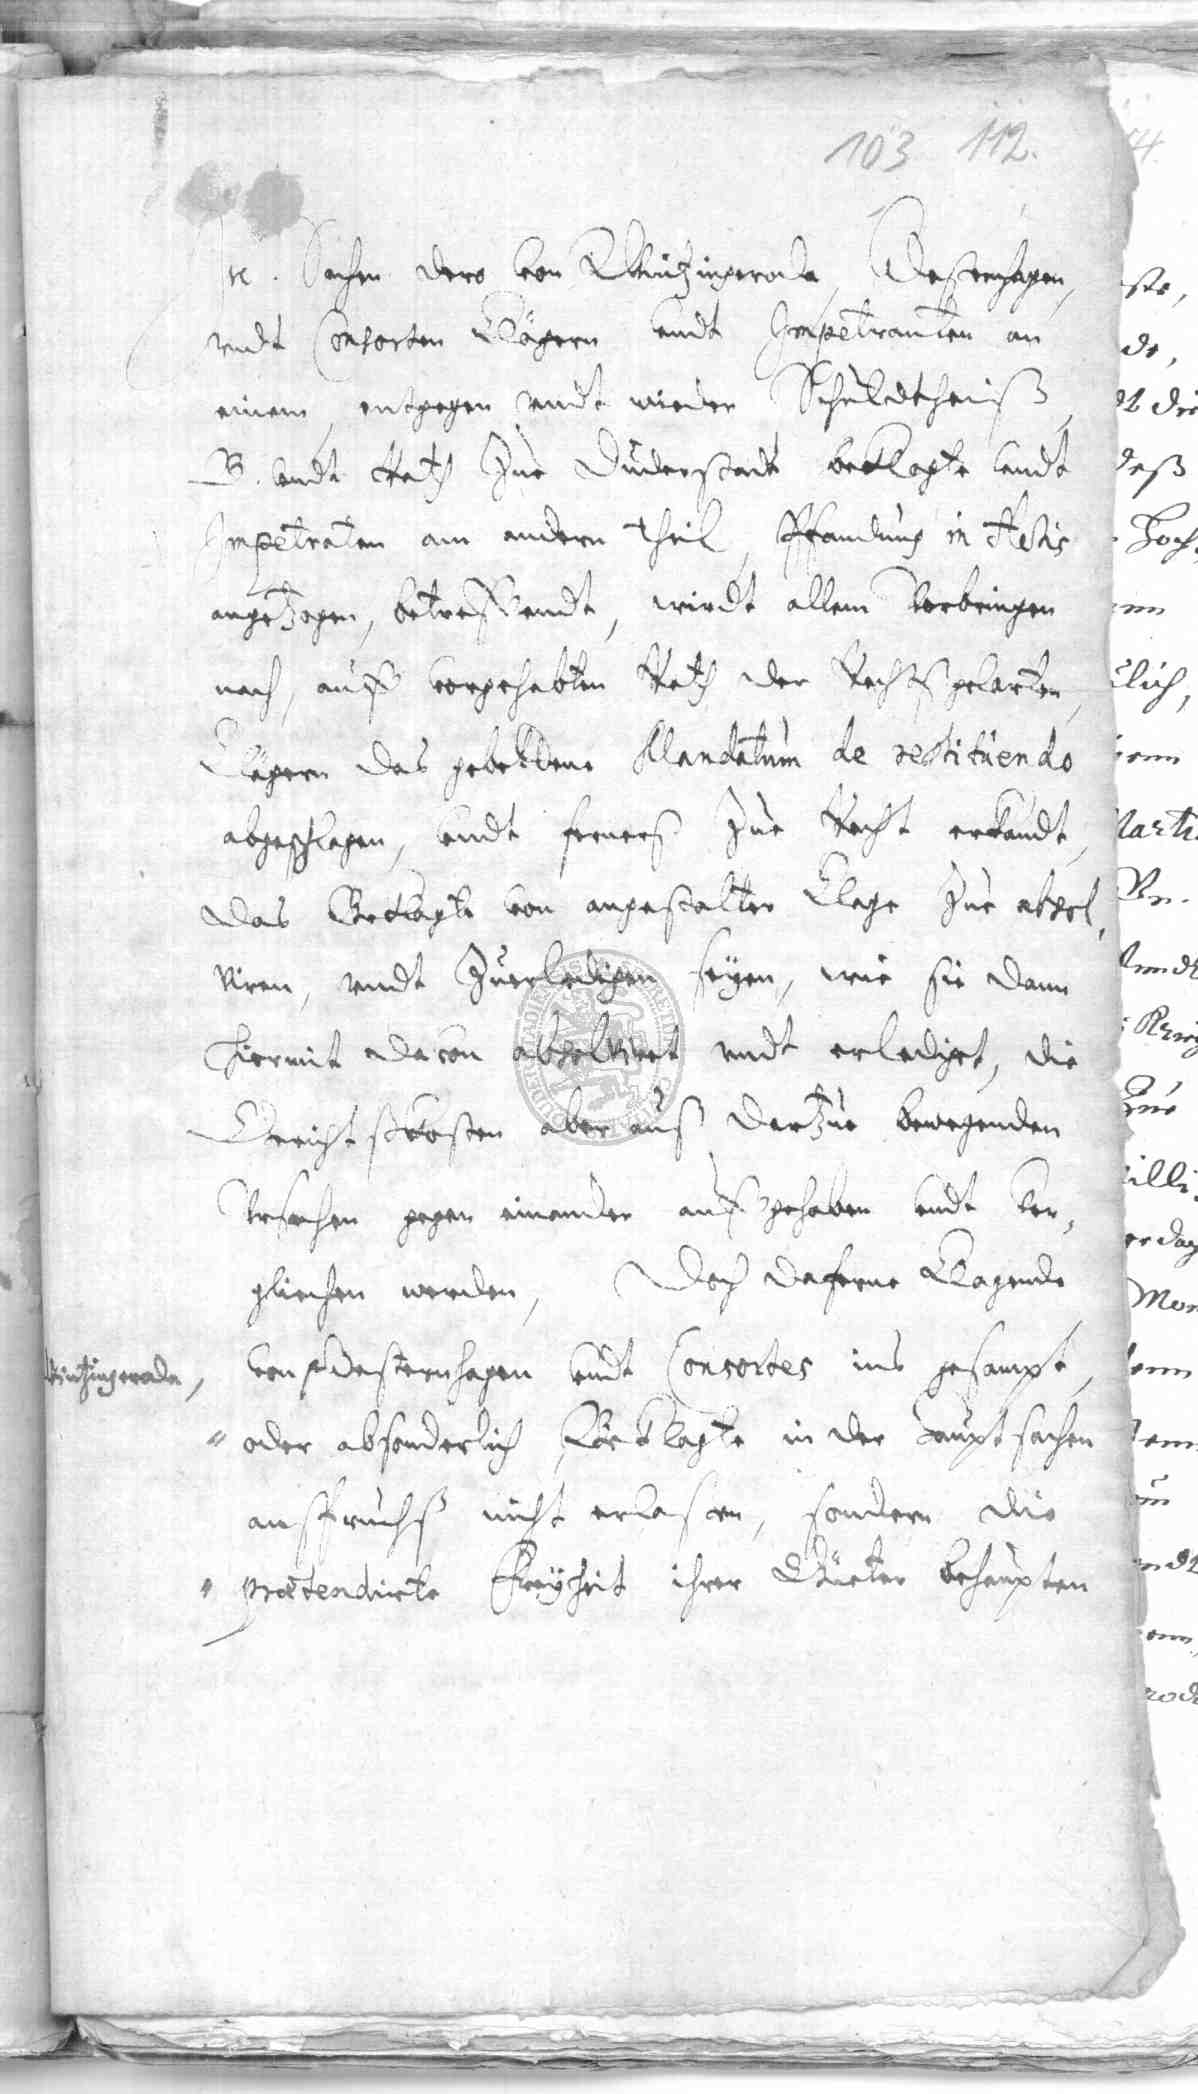 103 112.
In Sachen dero von Wintzingeroda, Westernhagen,
undt Consorten Clägern undt Impetranten an
einem, entgegen undt wieder Schuldtheiß,
B. undt Rath Zue Duderstadt beklagte undt
Impetraten am andern Theil, Pfandung in Actis
angetzogen, betreffendt, wirdt allem Vorbringen
nach, auff vorgehabten Rath der Rechtßgelarten,
Clägern das gebettene Mandatum de restituendo
abgeschlagen, undt ferners Zue Recht erkandt,
das Beklagte von angestalter Clage Zue absol,
viren, undt Zuerledigen seyen, wie sie dann
hiermit davon absolvirt undt erlediget, die
Gerichtskosten aber auß dartzue bewegenden
Ursachen gegen einander auffgehaben undt ver,
gliechen werden, Doch daferne Clagende
Wintzingeroda,
von Westernhagen undt Consortes ins gesampt,
oder absonderlich Beklagte in der Hauptsachen
anspruchs nicht erlassen, sondern die
praetendirte Freyheit ihrer Güeter behaupten